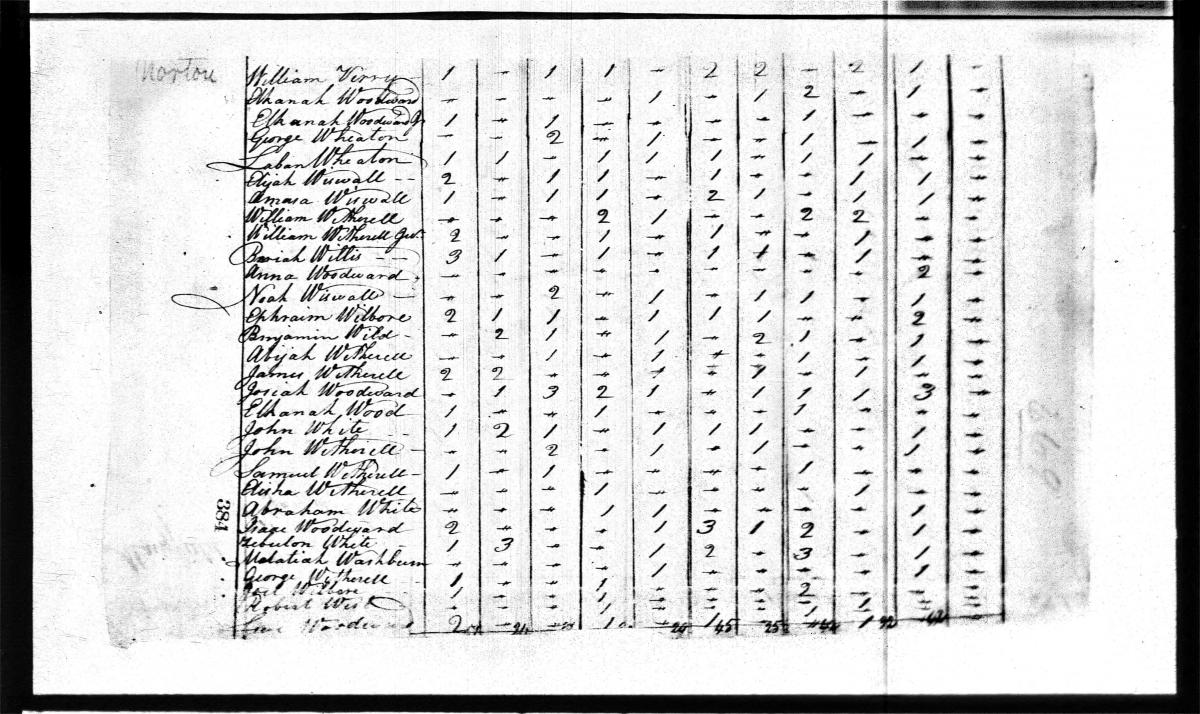 Norton
William Virry 1 - 1 1 - 2 2 - 2 1 -
Elkanah Woodward - - - - 1 - 1 2 - 1 -
Elkanah Woodward Jr 1 - 1 - 1 - - 1 - - -
George Wheaton - - 2 - 1 - - 1 - 1 -
Laban Wheaton 1 1 - 1 1 1 - 1 1 - -
Elijah Wiswall 2 - 1 1 - 1 - - 1 1 -
Amasa Wiswall 1 - 1 1 - 2 1 - 1 1 -
William Witherell - - - 2 1 - - 2 2 - -
William Witherell Jur. 2 - - 1 - 1 - - 1 - -
Willis - - 3 1 - 1 - 1 1 - 1 - -
Anna Woodward - - - - - - - - - 2 -
Noah Wiswall - - 2 - 1 - 1 1 - 1 -
Ephraim Wilbore 2 1 1 - 1 1 1 - - 2 -
Benjamin Wild - 2 1 - 1 - 2 1 - 1 -
Abijah Witherell - - 1 - 1 - - 1 - 1 -
James Witherell 2 2 - - 1 - 1 - 1 - -
Josiah Woodward - 1 3 2 1 - 1 1 1 3 -
Elkanah Wood 1 - - 1 - - - 1 - - -
John White 1 2 1 - 1 1 1 - - 1 -
John Witherell - - 2 - 1 - 1 - - 1 -
Samuel Witherell 1 - 1 - - - - 1 - - -
Elisha Witherell - - - 1 - - - - 1 - -
Abraham White - - - 1 1 - - - - 1 -
384
Isaac Woodward 2 - - - 1 3 1 2 - 1 -
Zebulon White 1 3 - - 1 2 - 3 - 1 -
Malatiah Washburn - - - - 1 - - - - 1 -
George Witherell 1 - - 1 - - - 2 - - -
Joel Wilbore - - - 1 - - - - 1 - -
Robert West - - - 1 - - - 1 - - -
Woodward 2 - - 1 - 1 - - 1 - -